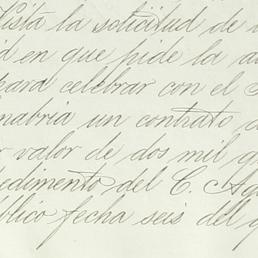 Vista la solicitud de
en que pide la a
para celebrar con el
un contrato
valor de dos mil
pedimento del C. Ag
blico fecha seis del